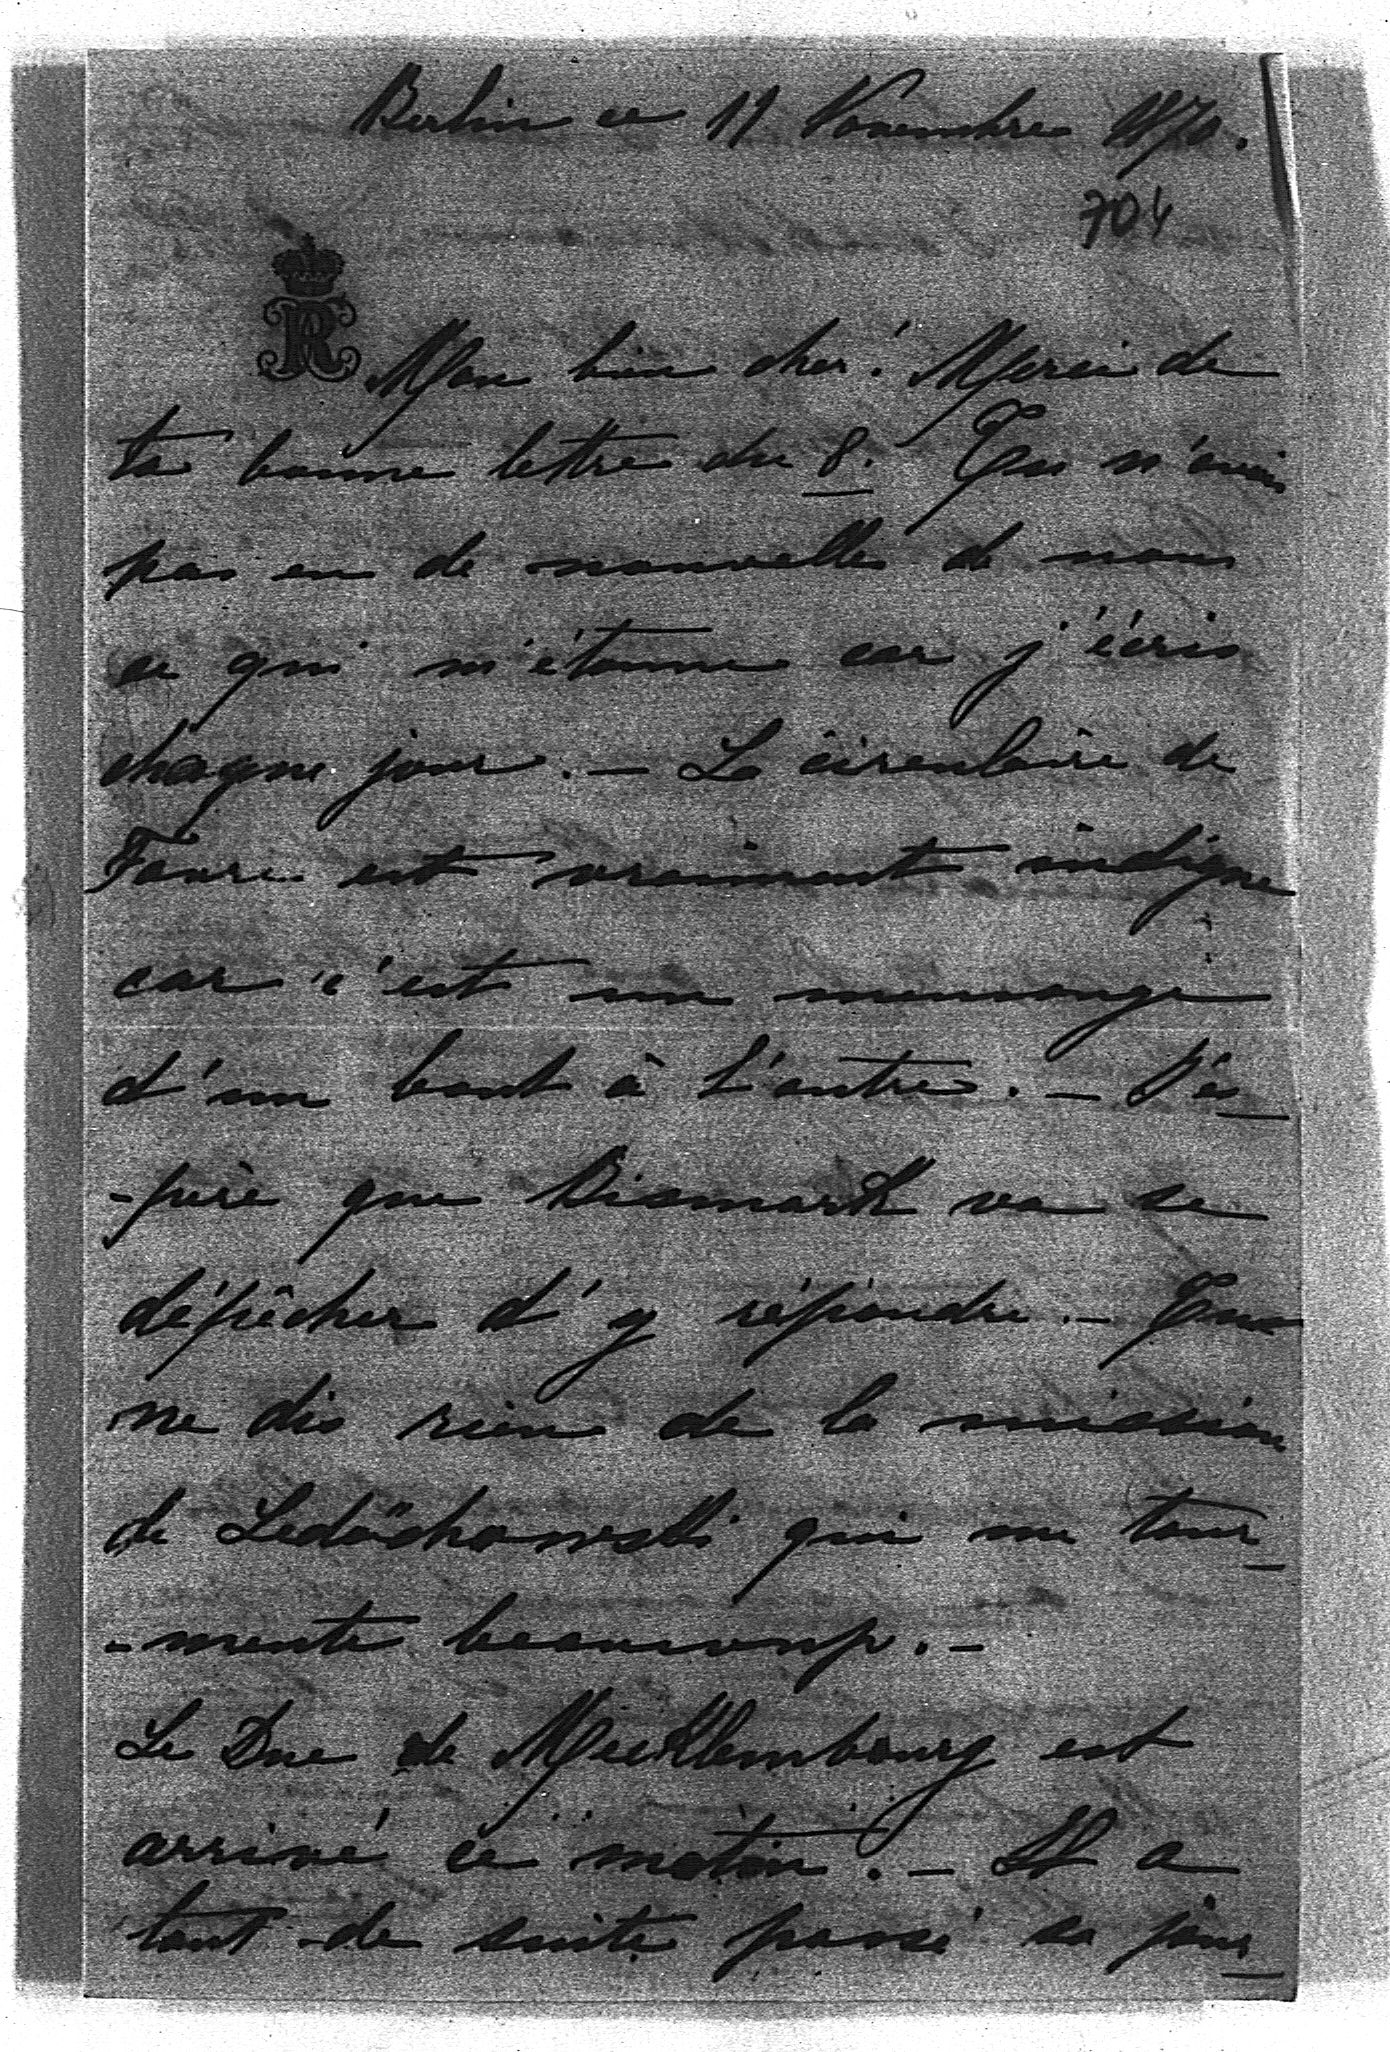 Berlin ce 11 Novembre 1870.
704
R
Mon bien cher! Merci de
ta bonne lettre du 8. Tu n'avais
pas eu de nouvelles de nous
ce qui m'étonne car j'écris
chaque jour. — La circulaire de
Favre est vraiment indigne
car c'est un mensonge
d'un bout à l'autre. — J'es-
-père que Bismark va se
dépêcher d'y répondre. — Tu
ne dis rien de la mission
de Ledochowski qui me tour-
-mente beaucoup. —
Le Duc de Mecklembourg est
arrivé ce matin. — Il a
tout de suite passé sa jour-